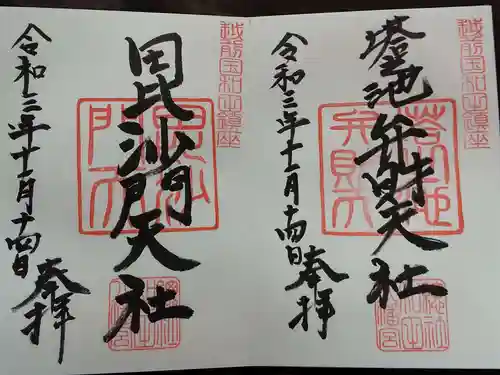 越前国和田鎮座
塔池弁財天社
令和三年十一月十四日
奉拝
越前国和田鎮座
毘沙門天社
令和三年十一月十四日
奉拝